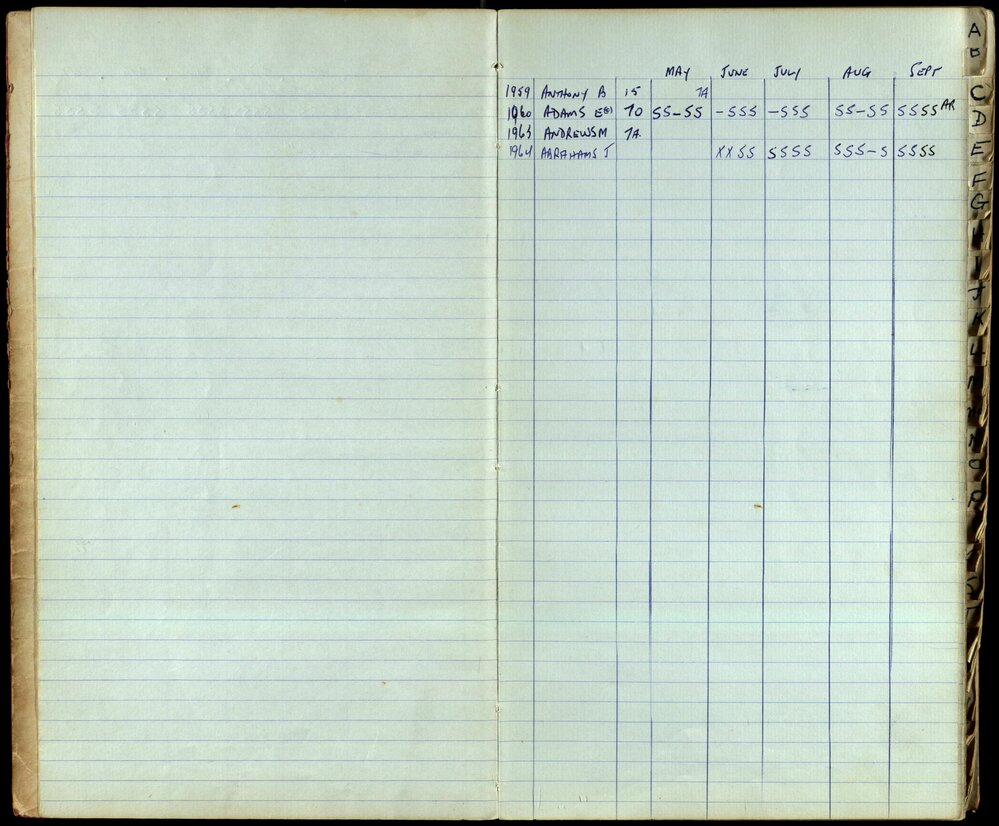 MAY JUNE JULY AUG SEPT
1959 ANTHONY B 15 7A
1960 ADAMS E(B) 70 SS-SS -SSS -SSS SS-SS SSSS AR
1963 ANDREWS M 7A
1964 ABRAHAMS J XXSS SSSS SSS-S SSSS
A
B
C
D
E
F
G
H
I
J
K
L
M
N
O
P
S